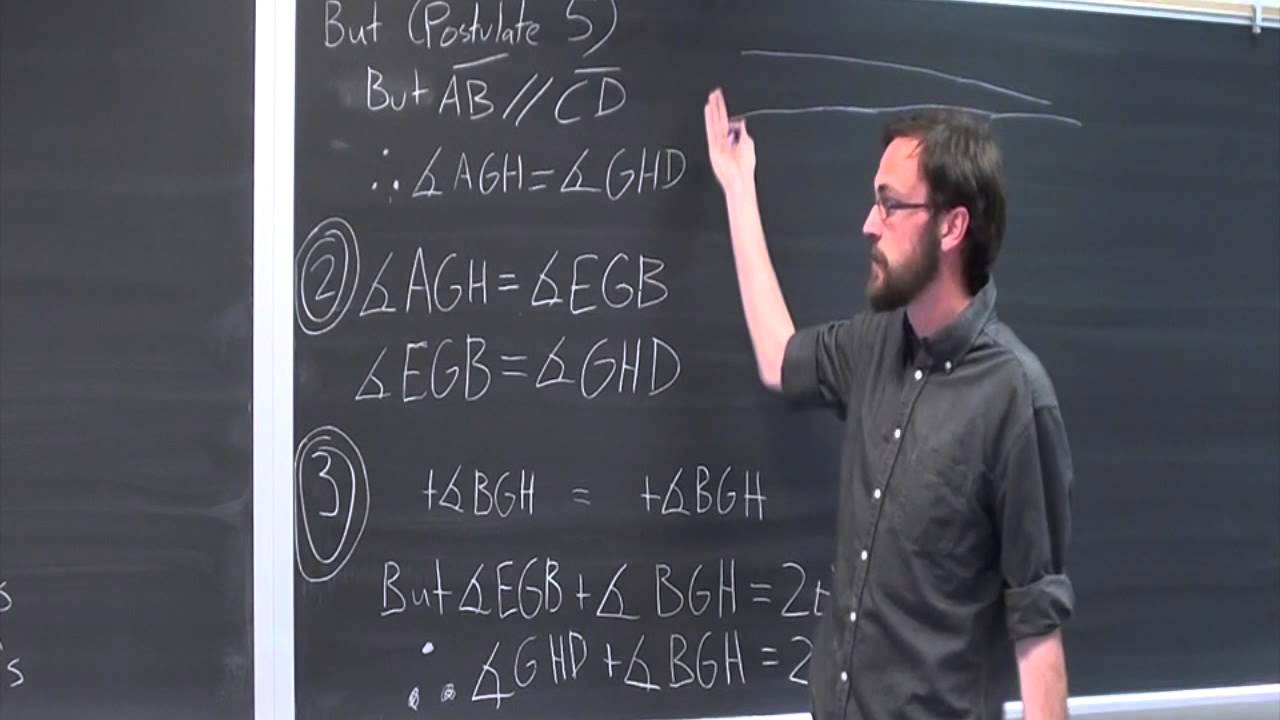 But (Postulate 5)
But AB // CD
∴ ∡AGH = ∡GHD
2 ∡AGH = ∡EGB
∡EGB = ∡GHD
3 +∡BGH = +∡BGH
But ∡EGB + ∡BGH = 2
∴ ∡GHD + ∡BGH = 2
s
's